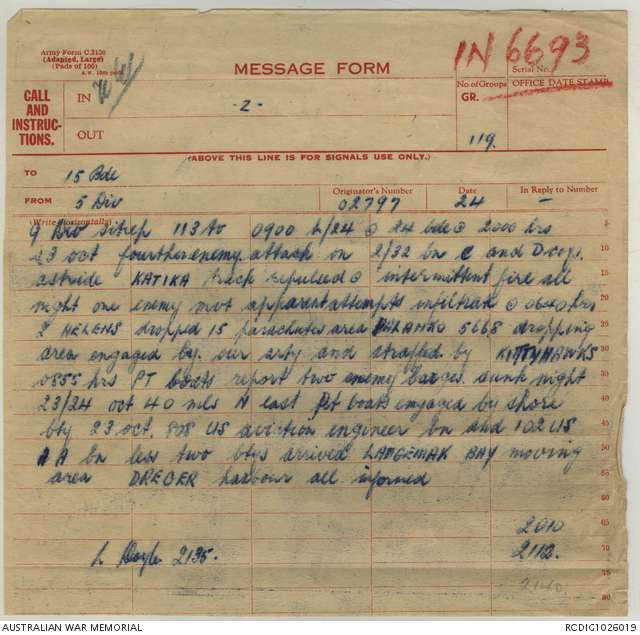 Army Form C.2136
(Adapted, Large)
(Pads of 100)
MESSAGE FORM
IN 6693
Serial No.
CALL AND INSTRUC-TIONS.
IN
-2-
No. of Groups
OFFICE DATE STAMP
GR.
OUT
119.
(ABOVE THIS LINE IS FOR SIGNALS USE ONLY.)
TO 15 Bde
FROM 5 Div
Originator's Number 02797
Date 24
In Reply to Number —
(Write horizontally)
9 Div Sitrep 113 to 0900 L/24 @ 24 bde @ 2000 hrs
23 oct fourther enemy attack on 2/32 bn C and D coys.
astride KATIKA track repulsed @ intermittent fire all
night one enemy mvt apparent attempts infiltrate @ 0640 hrs
2 HELENS dropped 15 parachutes area 5668 dropping
area engaged by our arty and straffed by KITTYHAWKS
0855 hrs PT boats report two enemy barges sunk night
23/24 oct 40 mls N east Pt boats engaged by shore
bty 23 oct. 808 US aviction engineer bn and 102 US
AA bn less two btys arrived LANGEMAK BAY moving
area DREGER harbour all informed
5
10
15
20
25
30
35
40
45
50
55
60
65
70
75
80
2010
Doyle 2135.
2112.
2140
AUSTRALIAN WAR MEMORIAL
RCDIG1026019